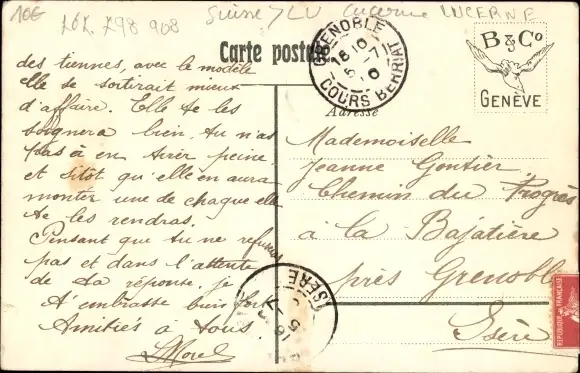 10€
Suisse / LU Lucerne LUCERNE
Carte postale
B & Cº
GENÈVE
GRENOBLE
COURS BERRIAT
Adresse
des tiennes, avec le modèle
elle se sortirait mieux
d'affaire. Elle te les
soignera bien, tu n'as
pas à en avoir peine,
et sitôt qu'elle en aura
monter une de chaque elle
te les rendras.
Pensant que tu ne refuses
pas et dans l'attente
de ta réponse, je
t'embrasse bien fort
Amitiés à tous.
LMorel
Mademoiselle
Jeanne Gontier
Chemin du Progrès
à la Bajatière
près Grenoble
Isère
ISÈRE
REPUBLIQUE FRANÇAISE